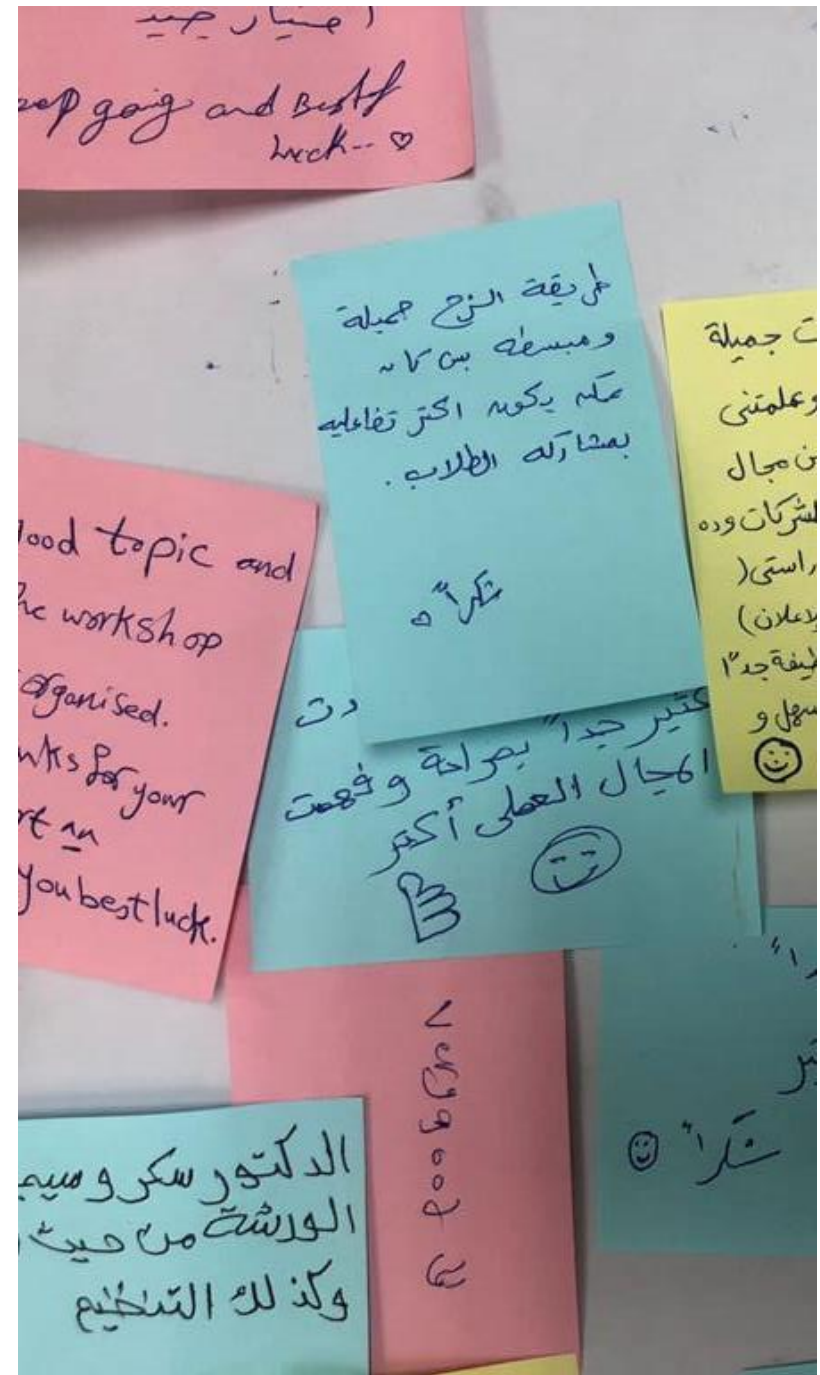 اختيار جيد
eep going and Best of
luck.. ♡
طريقة الشرح جميلة
ومبسطه بس كان
ممكن يكون اكتر تفاعليه
بمشاركه الطلاب .
شكراً
ت جميلة
وعلمتنى
ن مجال
لشركات وده
راستى (
لإعلان)
طيفة جداً
سهل و
ood topic and
he workshop
organised.
nks for your
rt an
you best luck.
دت
كتير جداً بصراحة وفهمت
المجال العملى أكتر
very good
شكراً
الدكتور سكر وسيم
الورشة من حيث
وكذلك التنظيم